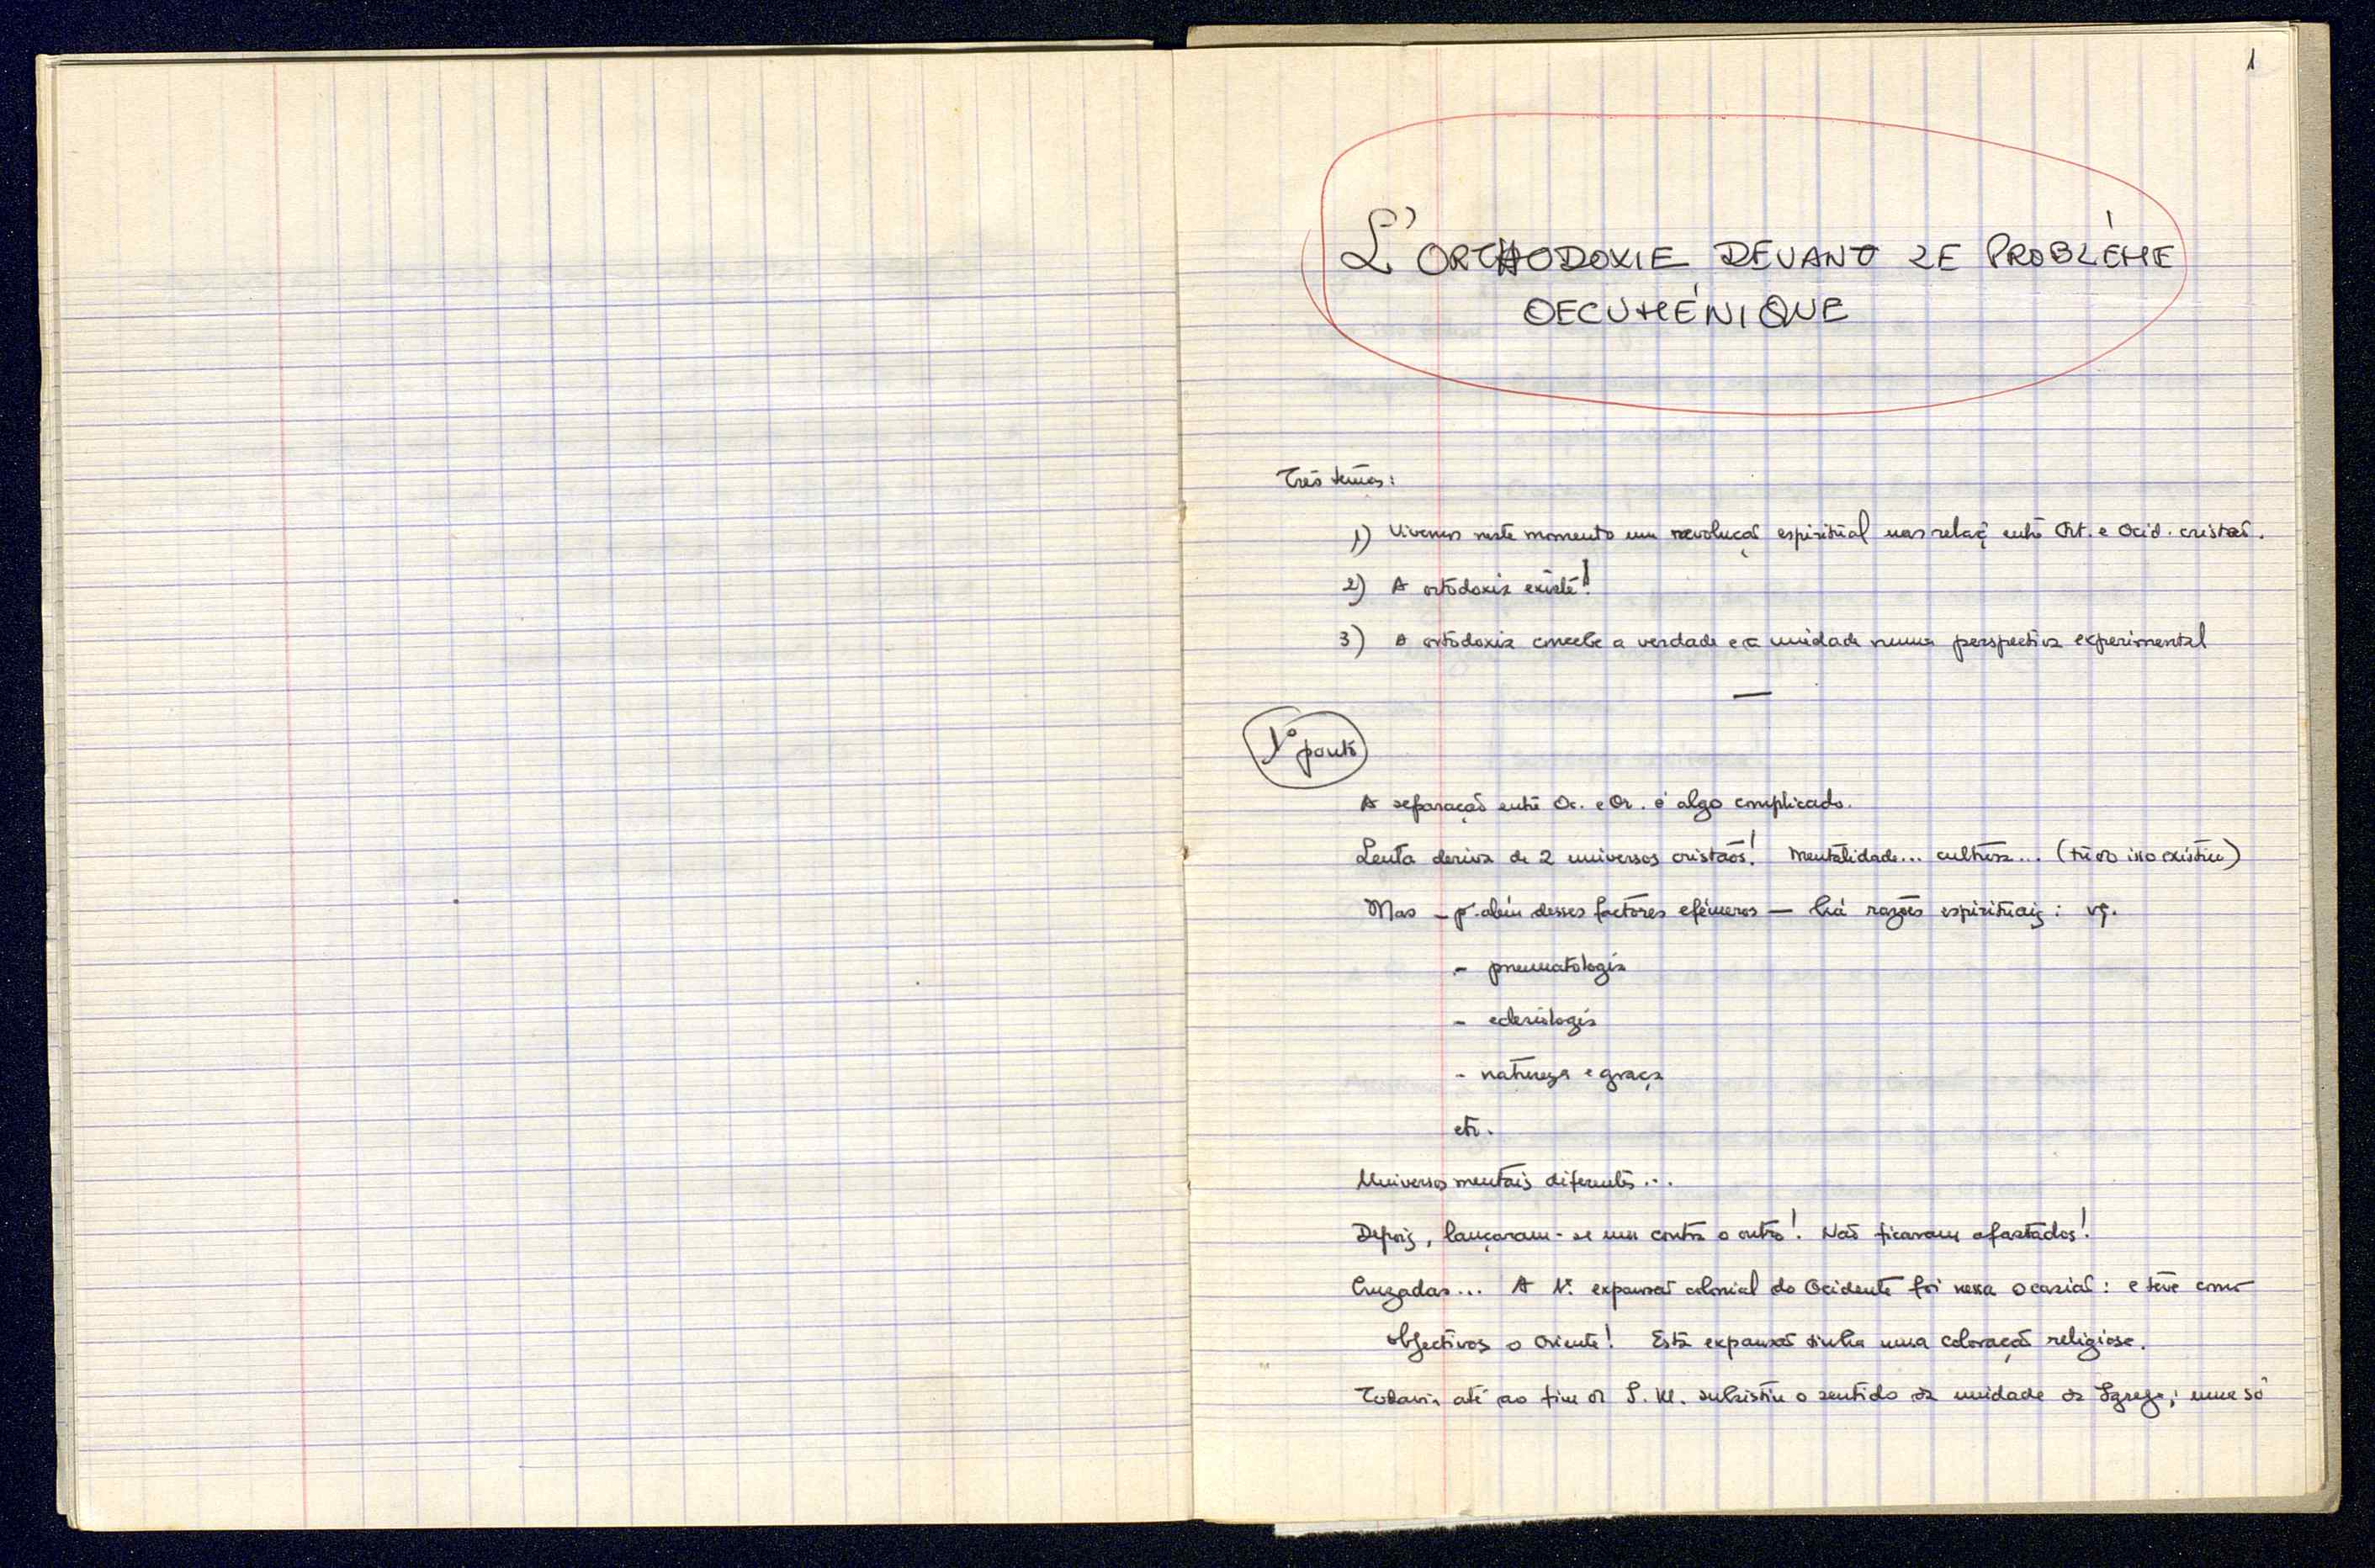 1
L'ORTHODOXIE DEVANT LE PROBLÉME
OECUMÉNIQUE
Três temas:
1) Vivemos neste momento um revolução espiritual nas relaç entre Ort. e Ocid. cristãos.
2) A ortodoxia existe!
3) A ortodoxia concebe a verdade e a unidade numa perspectiva experimental
—
1º ponto
A separação entre Oc. e Or. é algo complicado.
Lenta deriva de 2 universos cristãos! Mentalidade... cultura... (tudo isso existiu)
Mas — p. além desses factores efémeros — há razões espirituais: vg.
- pneumatologia
- eclesiologia
- natureza e graça
etc.
Universos mentais diferentes...
Depois, lançaram-se um contra o outro! Não ficaram afastados!
Cruzadas... A 1ª expansão colonial do Ocidente foi nessa ocasião: e teve como
objectivos o Oriente! Esta expansão tinha uma coloração religiosa.
Todavia até ao fim do S. XI. subsistiu o sentido da unidade da Igreja; uma só